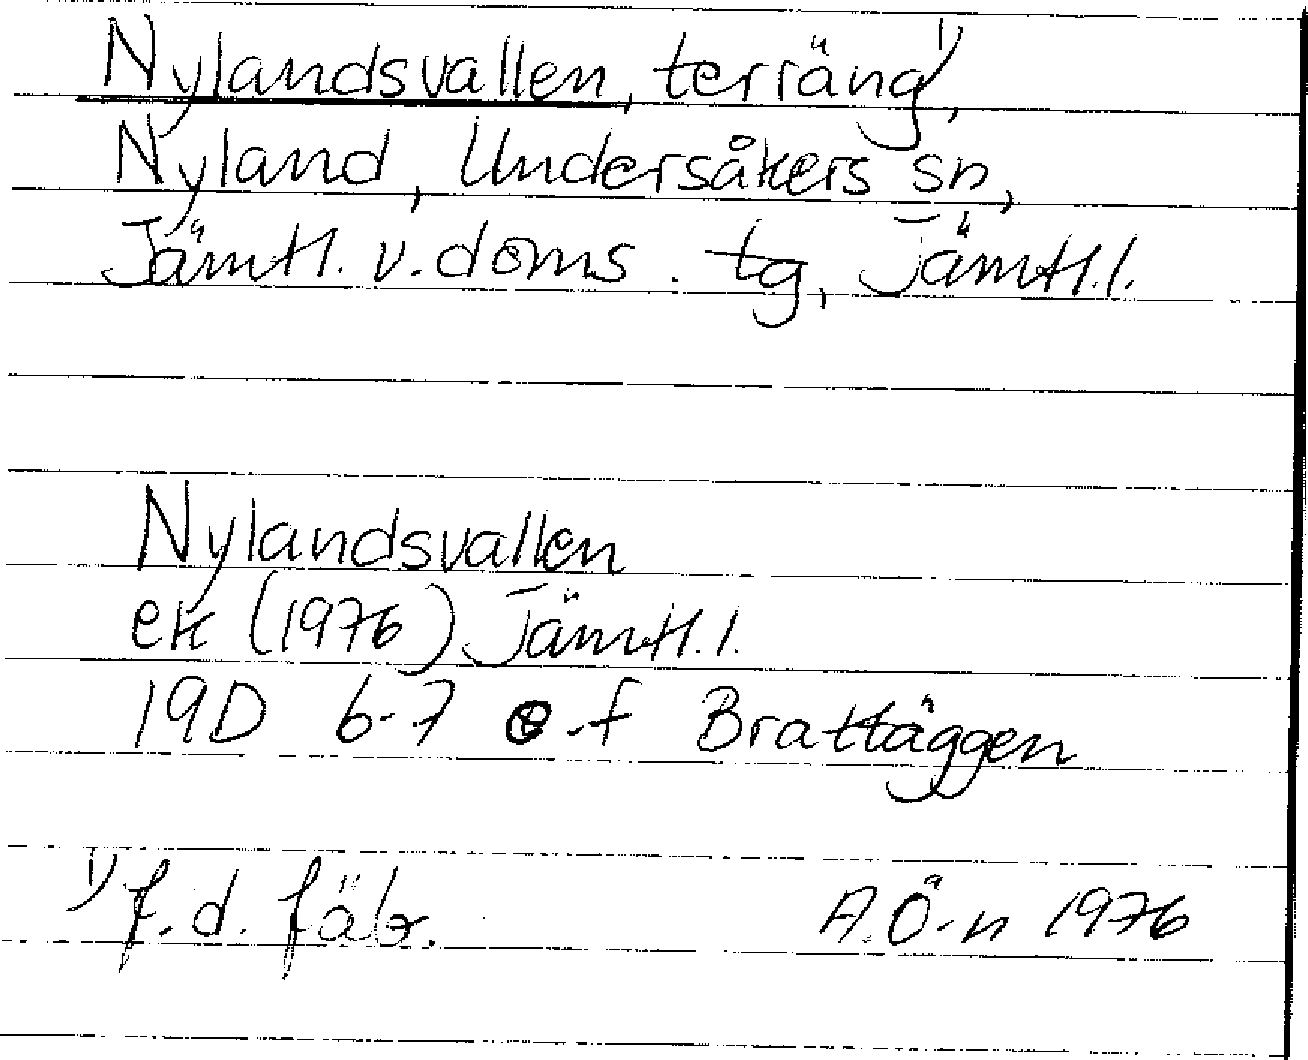 Nylandsvallen, terräng¹⁾,
Nyland, Undersåkers sn,
Jämtl. v. doms. tg, Jämtl. l.
Nylandsvallen
ek (1976) Jämtl. l.
19D 6-7 e-f Brattäggen
¹⁾ f. d. fäb. A. Ö-n 1976